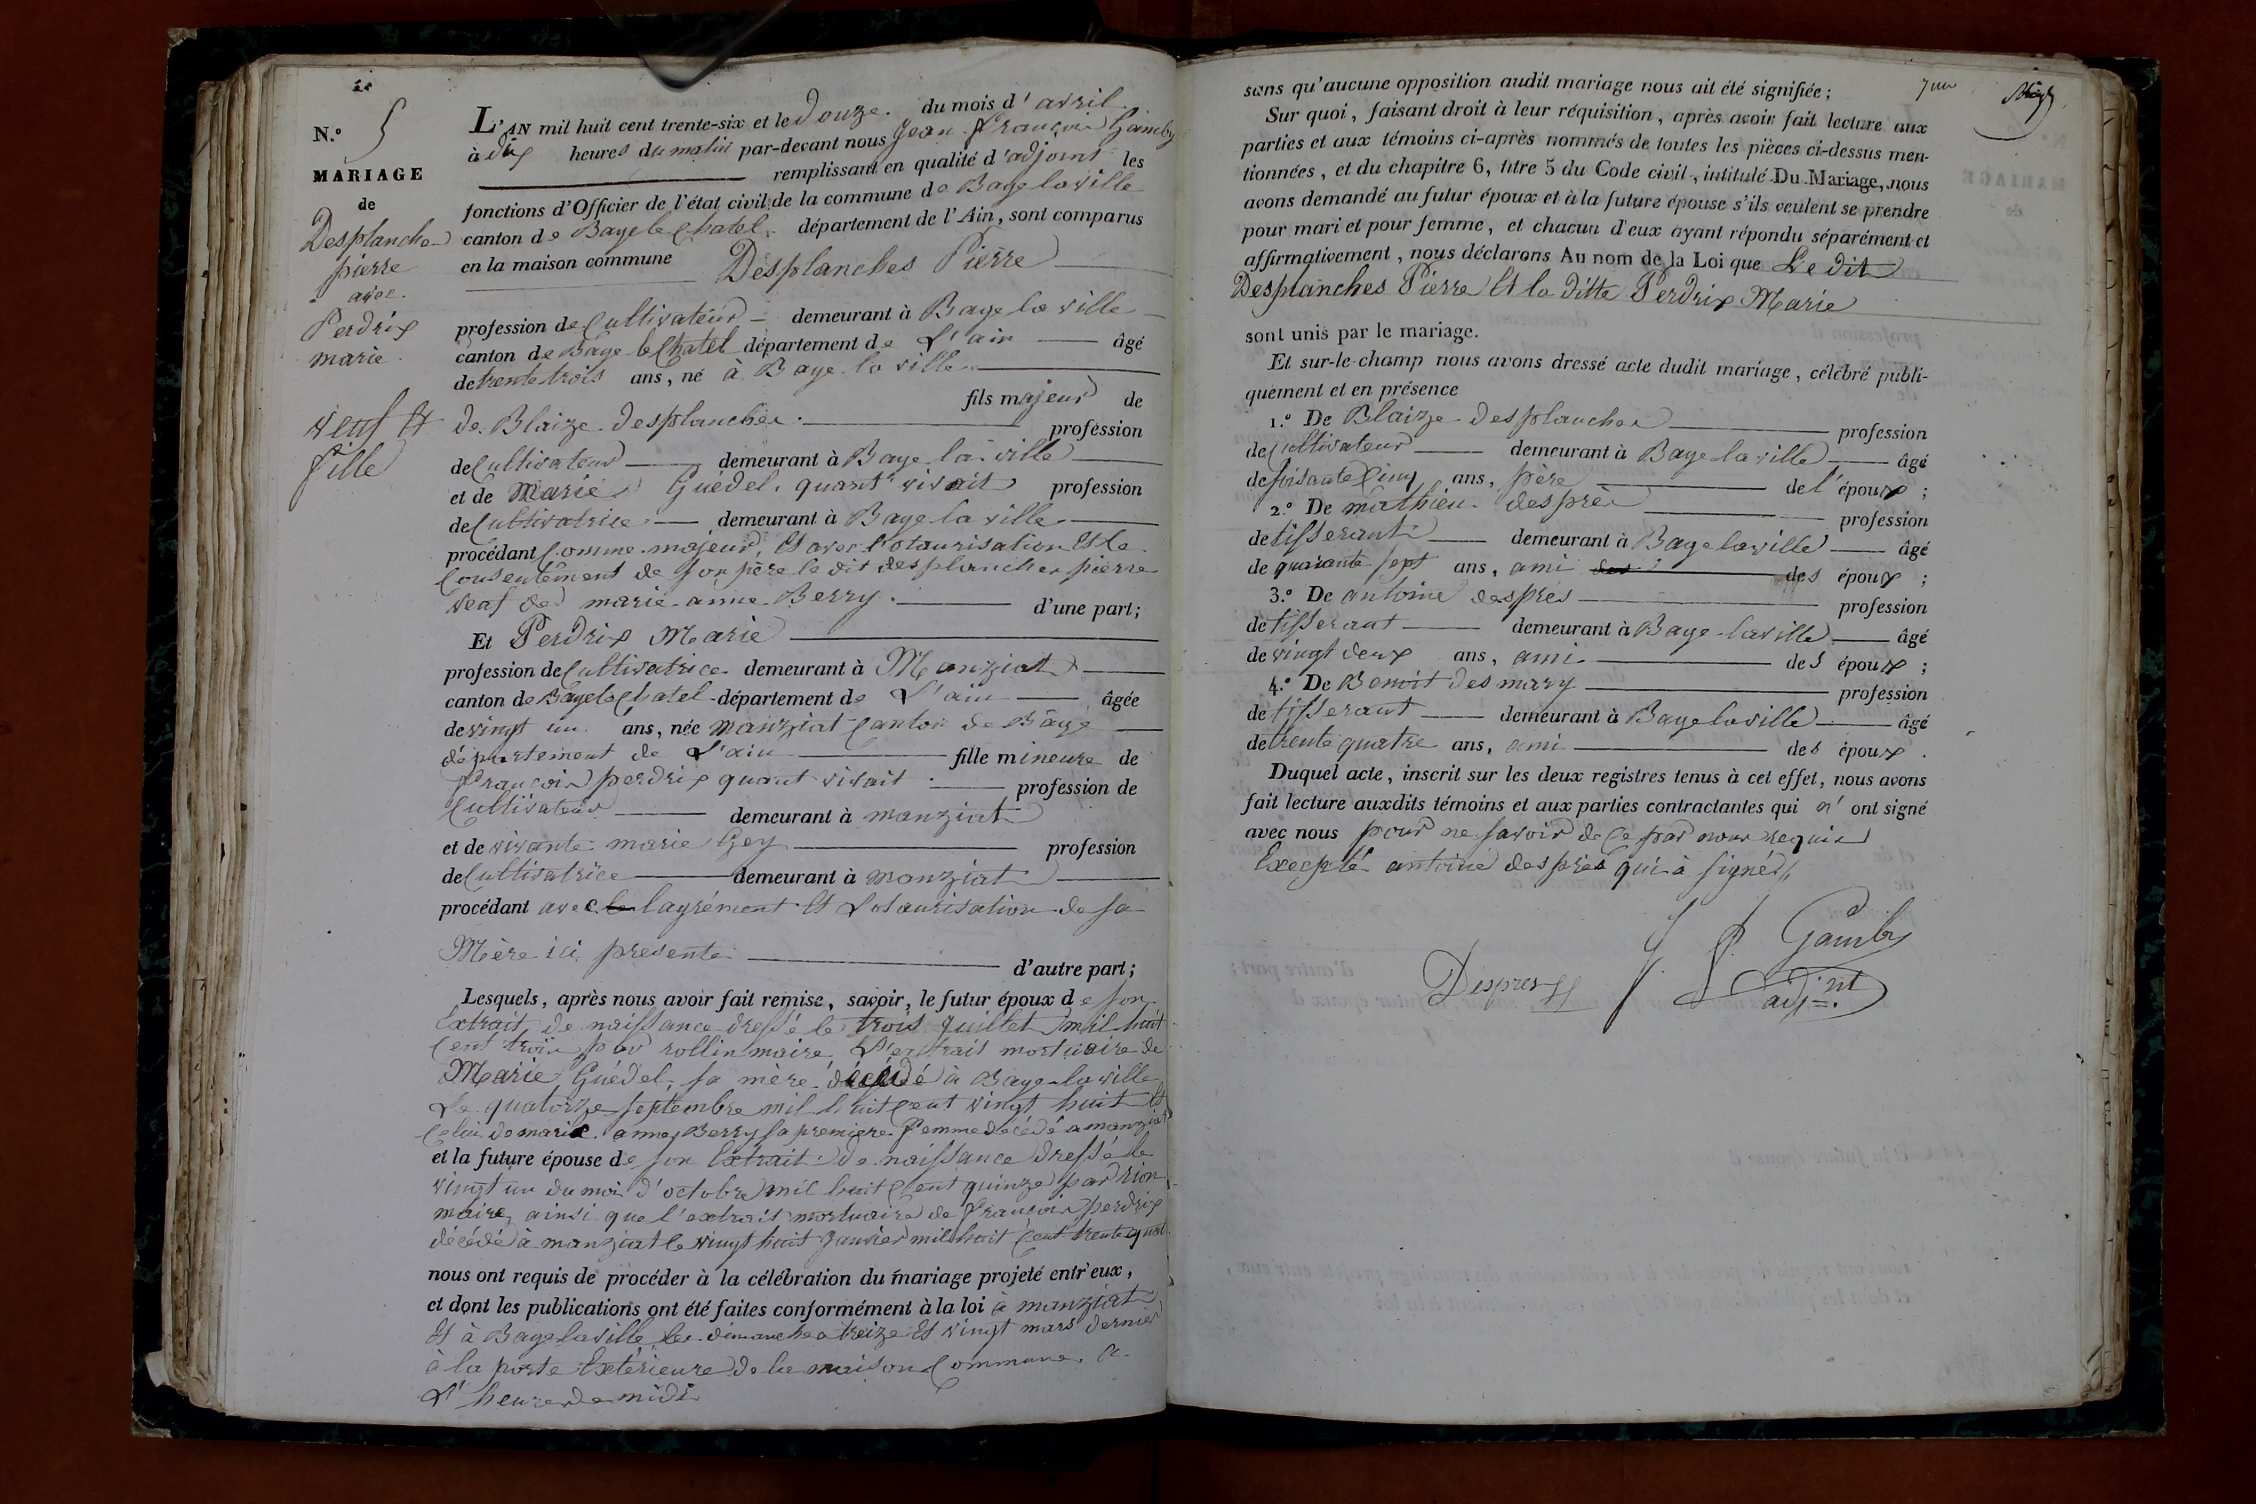 N.° 5
MARIAGE
de
Desplanches
pierre
avec
Perdrix
marie
veuf et
fille
L'AN mil huit cent trente-six et le Douze du mois d'avril
à dix heures du matin par-devant nous Jean François Gamby
remplissant en qualité d'adjoint les
fonctions d'Officier de l'état civil de la commune de Bage la ville
canton de Bage le Chatel département de l'Ain, sont comparus
en la maison commune Desplanches Pierre
profession de Cultivateur demeurant à Bage la ville
canton de Bage le Chatel département de L'ain âgé
de trente trois ans, né à Bage la ville
fils majeur de
de Blaize desplanches profession
de Cultivateur demeurant à Bage la ville
et de Marie Guédel quant vivait profession
de Cultivatrice demeurant à Bage la ville
procédant Comme majeur, Et avec l'otaurisation Et le
Consentement de son père le dit desplanches pierre
veaf de marie anne Berry d'une part;
Et Perdrix Marie
profession de Cultivatrice demeurant à Manziat
canton de Bagé le Chatel département de L'ain âgée
de vingt un ans, née manziat Canton de Bâgé
département de L'ain fille mineure de
François perdrix quant vivait profession de
Cultivateur demeurant à manziat
et de vivante marie Gey profession
de Cultivatrice demeurant à manziat
procédant avec le layrément Et Lotaurisation de sa
Mère ici presente d'autre part;
Lesquels, après nous avoir fait remise, savoir, le futur époux de son
Extrait de naissance dressé le trois Juillet mil huit
Cent trois par rollin maire, L'extrait mortuaire de
Marie Guédel, sa mère décédé à Bage la ville
Le quatorze septembre mil huit Cent vingt huit Et
Celui de marie anne Berry sa premiere femme décédé a manziat
et la future épouse de son Extrait de naissance dressé le
vingt un du moi d'octobre mil huit Cent quinze par rion
maire, ainsi que l'extrait mortuaire de François perdrix
décédé à manziat le vingt huit Janvier mil huit Cent trente quat
nous ont requis de procéder à la célébration du mariage projeté entr'eux,
et dont les publications ont été faites conformément à la loi à manziat
Et à Bage la ville les dimanches treize Et vingt mars dernier
à la porte Extérieure de la maison Commune, a
L'heure de midi
sans qu'aucune opposition audit mariage nous ait été signifiée;
Sur quoi, faisant droit à leur réquisition, après avoir fait lecture aux
parties et aux témoins ci-après nommés de toutes les pièces ci-dessus men-
tionnées, et du chapitre 6, titre 5 du Code civil, intitulé Du Mariage, nous
avons demandé au futur époux et à la future épouse s'ils veulent se prendre
pour mari et pour femme, et chacun d'eux ayant répondu séparément et
affirmativement, nous déclarons Au nom de la Loi que Le dit
Desplanches Pierre Et la ditte Perdrix Marie
sont unis par le mariage.
Et sur-le-champ nous avons dressé acte dudit mariage, célébré publi-
quement et en présence
1.° De Blaize desplanches profession
de Cultivateur demeurant à Bage la ville âgé
de soisante Cinq ans, père de l'époux;
2.° De mathieu desprès profession
de tisserant demeurant à Bage la ville âgé
de quarante sept ans, ami des époux;
3.° De antoine després profession
de tisserant demeurant à Bage la ville âgé
de vingt deux ans, ami des époux;
4.° De Benoit desmary profession
de tisserant demeurant à Bage la ville âgé
de trente quatre ans, ami des époux.
Duquel acte, inscrit sur les deux registres tenus à cet effet, nous avons
fait lecture auxdits témoins et aux parties contractantes qui n'ont signé
avec nous pour ne savoir de ce par nous requis
Excepté antoine després qui à signé
Despres J F Gamby
adj.nt